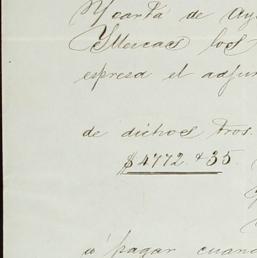 Y carta de Ay
Illescas los
espresa el adjun
de dichos Sros.
$4772.35
á pagar cuando